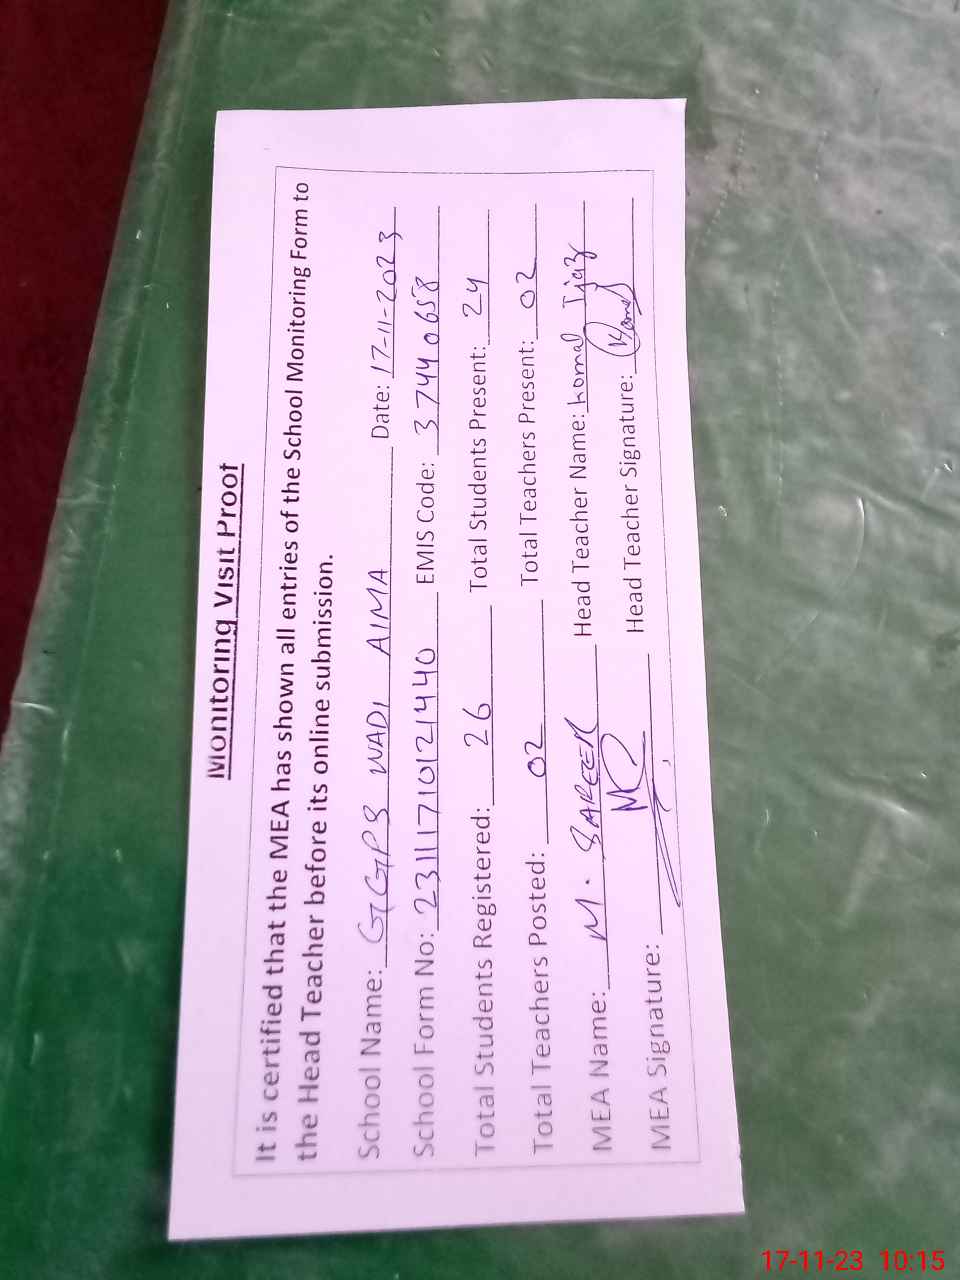 Monitoring Visit Proof
It is certified that the MEA has shown all entries of the School Monitoring Form to
the Head Teacher before its online submission.
School Name: GGPS WADI AIMA Date: 17-11-2023
School Form No: 23111710121440 EMIS Code: 37440658
Total Students Registered: 26 Total Students Present: 24
Total Teachers Posted: 02 Total Teachers Present: 02
MEA Name: M. SAFEER Head Teacher Name: komal Ijaz
MEA Signature: Head Teacher Signature: Komal
17-11-23 10:15